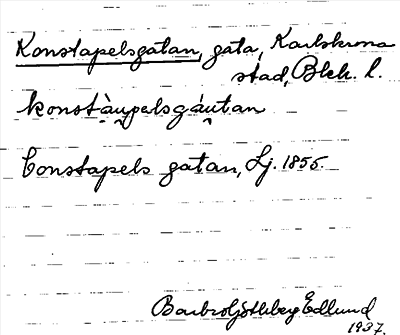 Konstapelsgatan, gata, Karlskrona
stad, Blek. l.
konstàu̯pelsgáu̯tan
Constapels gatan, Lj. 1855.
Barbro Edlund
1937.